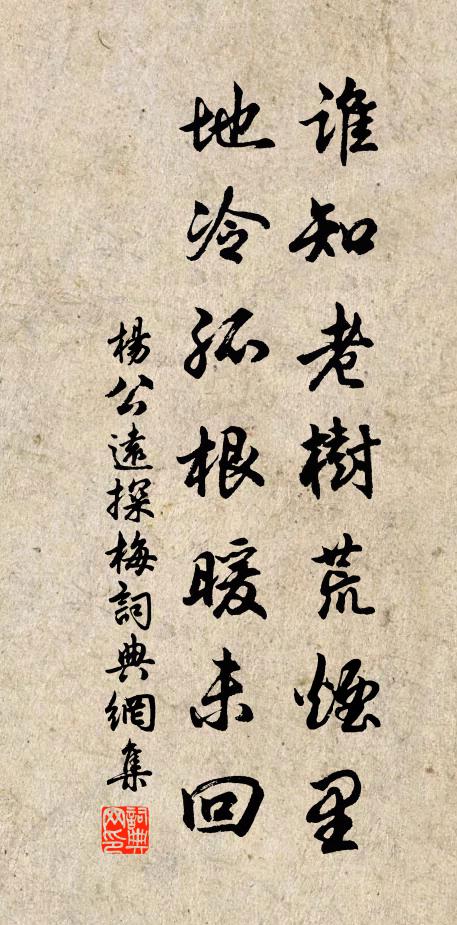 誰知老樹荒煙里
地冷孤根暖未回
楊公遠探梅詞典網集
詞典网印